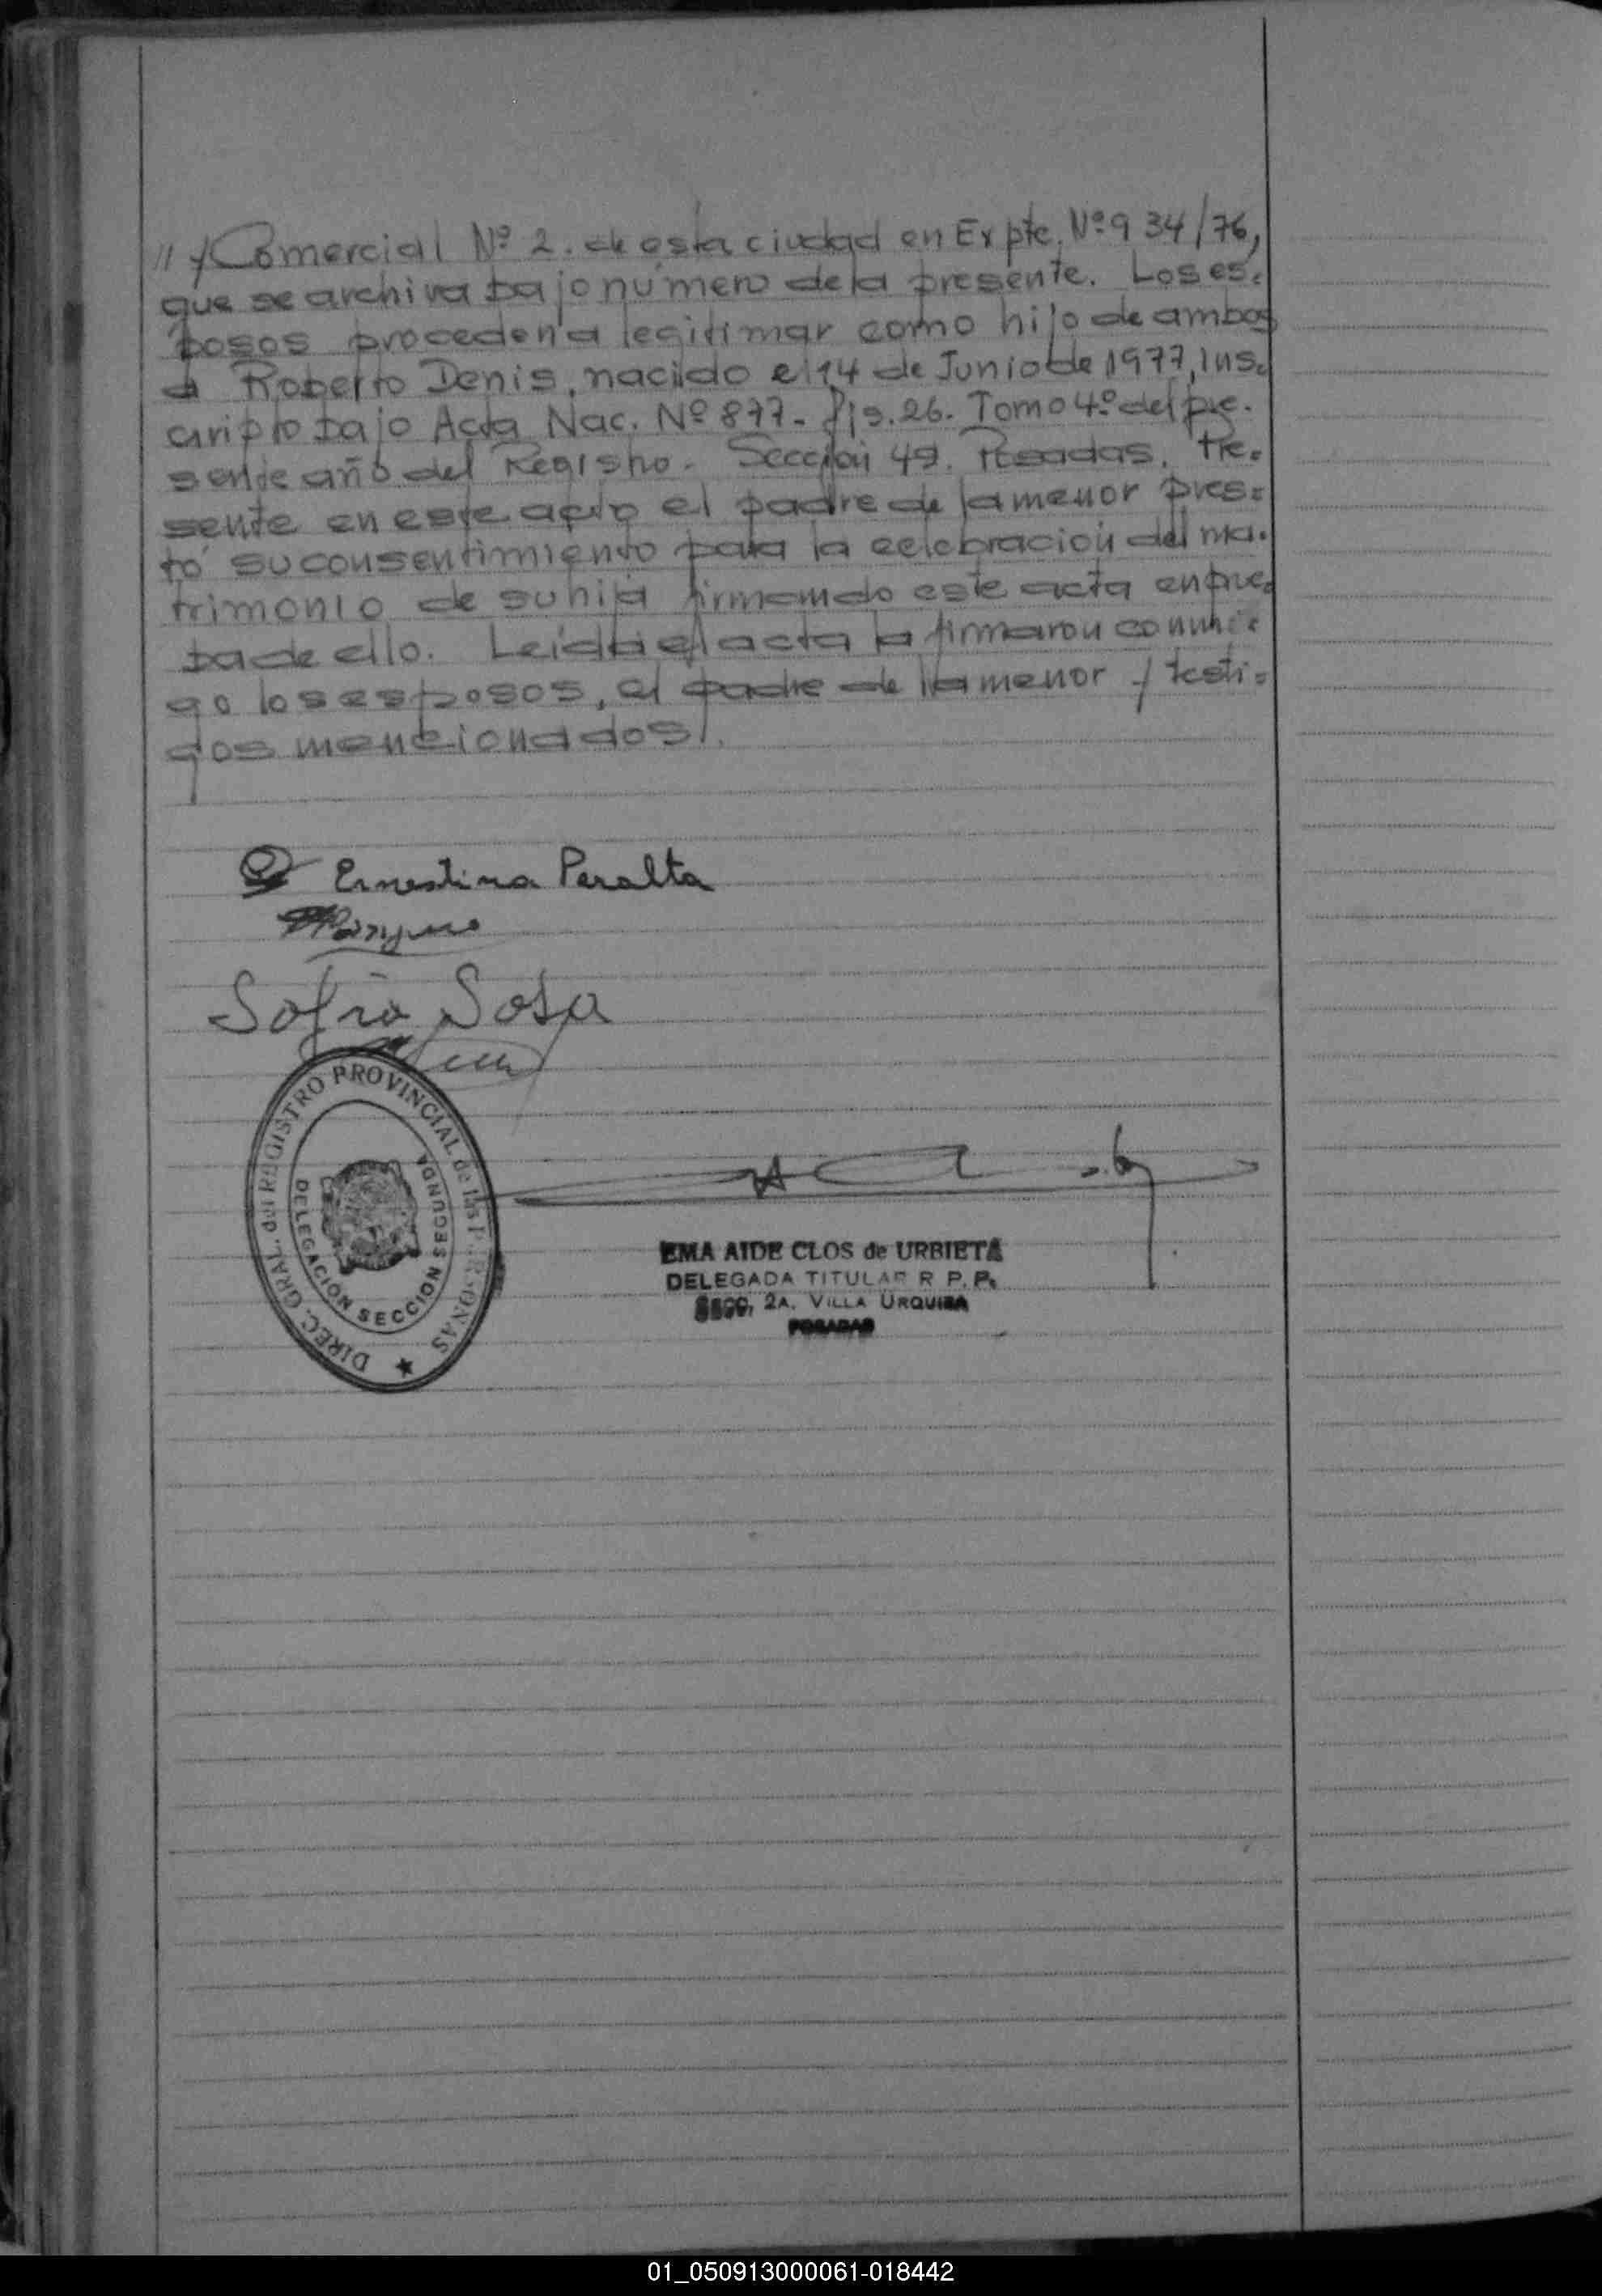 // y Comercial Nº 2. de esta ciudad en Expte. Nº 934/76,
que se archiva bajo número de la presente. Los es=
posos proceden a legitimar como hijo de ambos
a Roberto Denis, nacido el 14 de Junio de 1977, Ins=
cripto bajo Acta Nac. Nº 877- fjs. 26. Tomo 4º del pre-
sente año del Registro. Sección 4ª. Posadas. Pre=
sente en este acto el padre de la menor pres=
tó su consentimiento para la celebración del ma=
trimonio de su hija firmando este acta en prue=
ba de ello. Leída el acta la firmaron conmi=
go los esposos, el padre de la menor y testi=
gos mencionados.
Ernestina Peralta
Sofia Sosa
DIREC. GRAL. del REGISTRO PROVINCIAL de las PERSONAS
DELEGACION SECCION SEGUNDA
EMA AIDE CLOS de URBIETA
DELEGADA TITULAR R. P. P.
SECC. 2A. VILLA URQUIZA
POSADAS
01_050913000061-018442